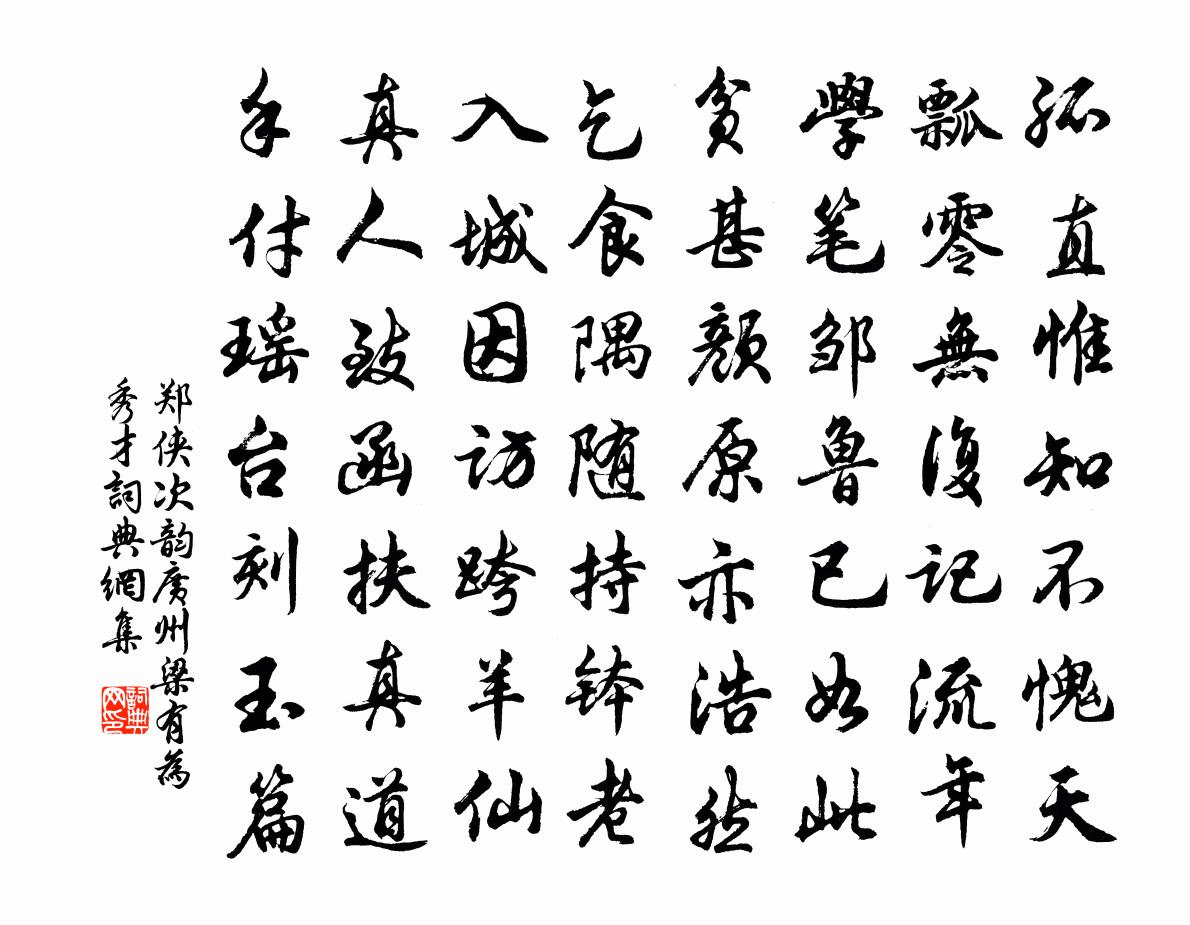 孤直惟知不愧天
飄零無復记流年
學笔邹鲁已如此
貧甚颜原亦浩然
乞食隅随持钵老
入城因访跨羊仙
真人致函扶真道
手付瑶台刻玉篇
郑侠次韵廣州梁有為
秀才詞典網集
詞典网印